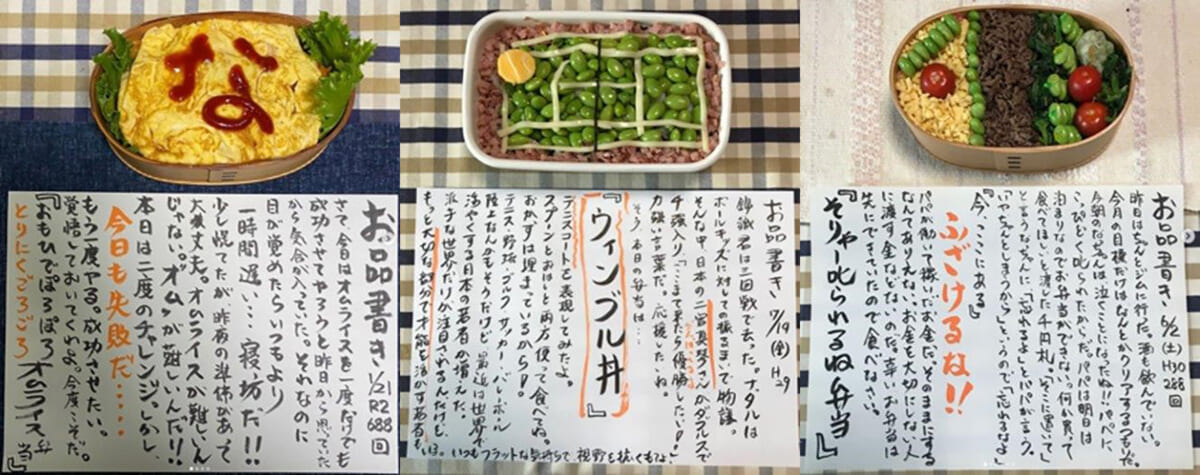 な
お品書き 1/21 R2 688回
さて、今日はオムライスを一度だけでも
成功させてやろうと昨日から思ってい
たから気合が入っていた。それなのに
目が覚めたらいつもより
一時間遅い…寝坊だ!!
少し慌てたが、昨夜の準備があって
大丈夫。オムライスが難しいん
じゃない。"オム"が難しいんだ!!
本日は二度のチャレンジ。しかし、
今日も失敗だ……
もう一度やる。成功させたい。
覚悟しておいてくれよ。今度こそだ。
とりにくごろごろ
『おもひでぽろぽろオムライス弁当』
お品書き 7/19(金) H29
錦織君は三回戦で去った。ナダルは
ボールキッズに対しての振るまいで物議。
そんな中、日本の二宮真琴さんがダブルスで
4強入り。「ここまで来たら優勝したい!」
力強い言葉だ。応援
そう、本日の弁当は…
『ウィンブル丼』
テニスコートを表現してみたよ。
スプーンとおはしと両方使って食べてね。
おかずは埋まっているから
テニス、野球、ゴルフ、サッカー、バレーボール
陸上なんかもそうだけど、最近は世界で
活やくする日本の若者が増えた。
派手な世界だけが注目されるんだけど、
もっと大切な部分で才能を活かす若者もいる。
いつもフラットな気持ちで、視野を
お品書き 6/2(土) H30 288回
昨日はちゃんとジムに行た。酒も飲んでない。
今月の目標だけはなんとかクリアするつもりだ。
今朝の は泣くことになったね!!パパに
こっぴどく叱られたからだ。パパは明日は
泊まりなのでお弁当ができない。何か買って
食べてほしいと渡した千円札。「そこに置いて」
と言うなっちゃんに「忘れるよ」とパパが言う。
「いっちゃんとしまうから」というので「忘れるなよ」
「今、ここにある」
ふざけるな!!
パパが働いて稼いだお金だ。そのままにする
なんてありえない。お金を大切にしない人
に渡す金などないのだ。幸いお弁当は
先にできていたので食べなさい。
『そりゃー叱られるね弁当』